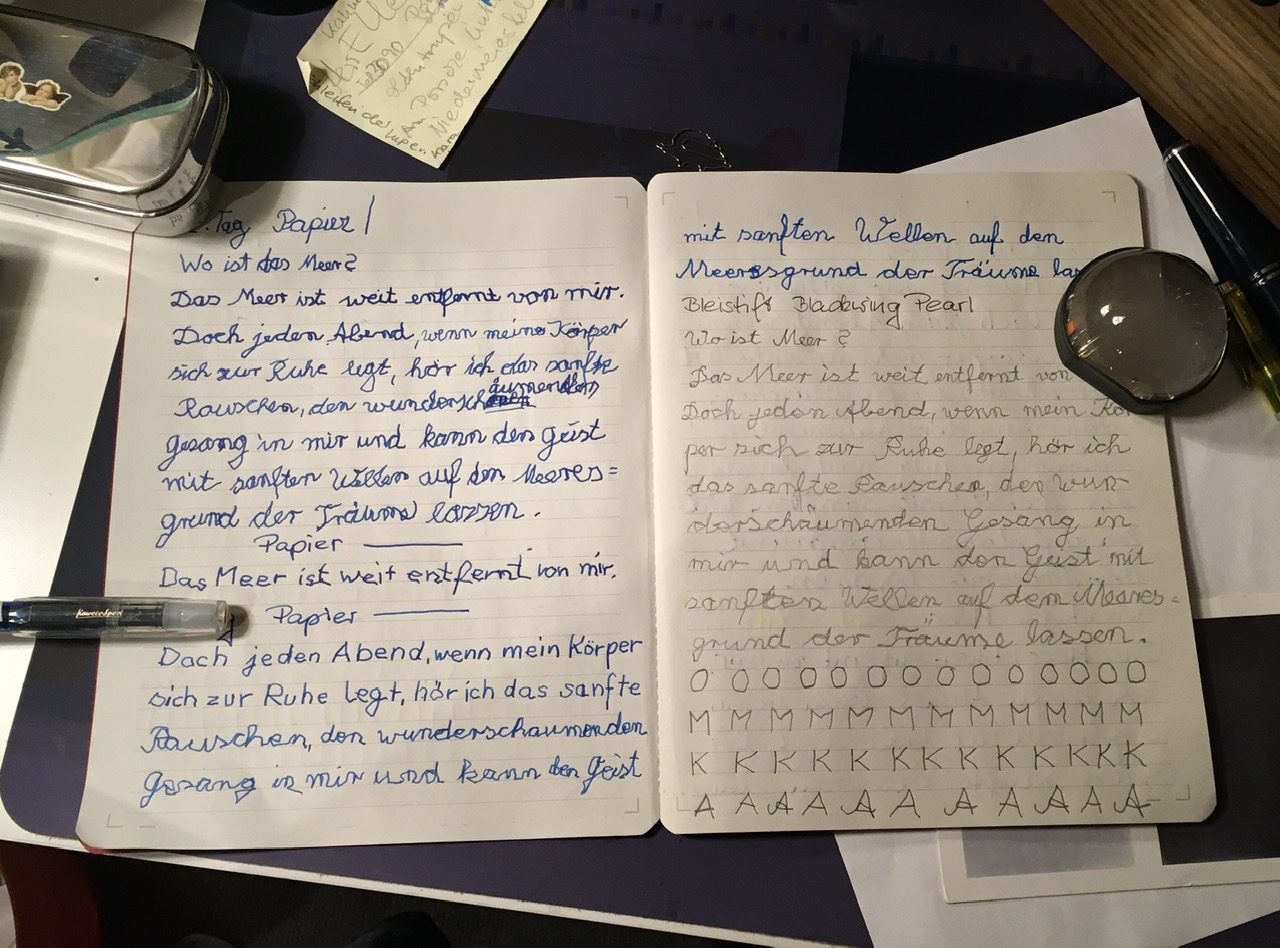 Tag Papier /
Wo ist das Meer?
Das Meer ist weit entfernt von mir.
Doch jeden Abend, wenn meine Körper
sich zur Ruhe legt, hör ich das sanfte
äumenden
Rauschen, den wundersch
gesang in mir und kann den geist
mit sanften Wellen auf den Meeres=
grund der Träume lassen.
Papier
Das Meer ist weit entfernt von mir.
Papier
KawecoSport
Doch jeden Abend, wenn mein Körper
sich zur Ruhe legt, hör ich das sanfte
Rauschen, den wunderschaumenden
gesang in mir und kann den geist
mit sanften Wellen auf den
Meeresgrund der Träume las
Bleistift Blackwing Pearl
Wo ist Meer?
Das Meer ist weit entfernt von
Doch jeden Abend, wenn mein Kör
per sich zur Ruhe legt, hör ich
das sanfte Rauschen, den wun-
derschäumenden Gesang in
mir und kann den Geist mit
sanften Wellen auf dem Meeres=
grund der Träume lassen.
O O O O O O O O O O O O O
M M M M M M M M M M M M
K K K K K K K K K K K K K
A A A A A A A A A A A